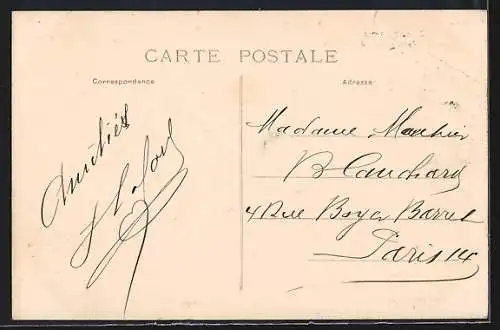 CARTE POSTALE
Correspondance
Adresse
Amitiés
Madame Mathieu
Blanchard
4 Rue Boyer Barret
Paris 14